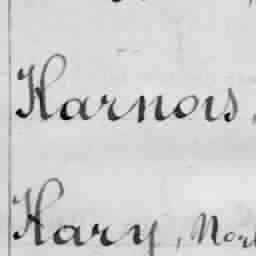 Harnois,
Hary, Nor